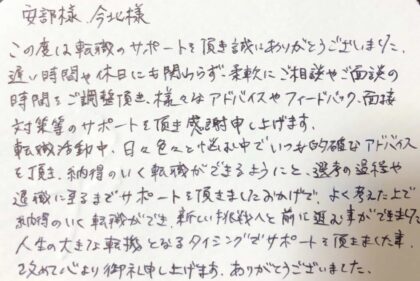 安部様 今北様
この度は転職のサポートを頂き誠にありがとうございました。
遅い時間や休日にも関わらず、柔軟にご相談やご面談の
時間をご調整頂き、様々なアドバイスやフィードバック、面接
対策等のサポートを頂き感謝申し上げます。
転職活動中、日々色々と悩む中でいつも的確なアドバイス
を頂き、納得のいく転職ができるようにと、選考の過程や
退職に至るまでサポートを頂きましたおかげで、よく考えた上で
納得のいく転職ができ、新しい挑戦へと前に進む事ができました。
人生の大きな転機となるタイミングでサポートを頂きました事、
改めて心より御礼申し上げます。ありがとうございました。